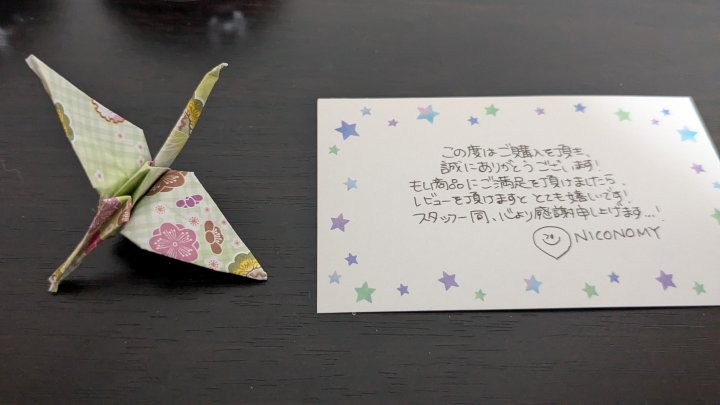 この度はご購入を頂き、
誠にありがとうございます!
もし商品にご満足を頂けましたら、
レビューを頂けますと とても嬉しいです!
スタッフ一同、心より感謝申し上げます…!
NICONOMY